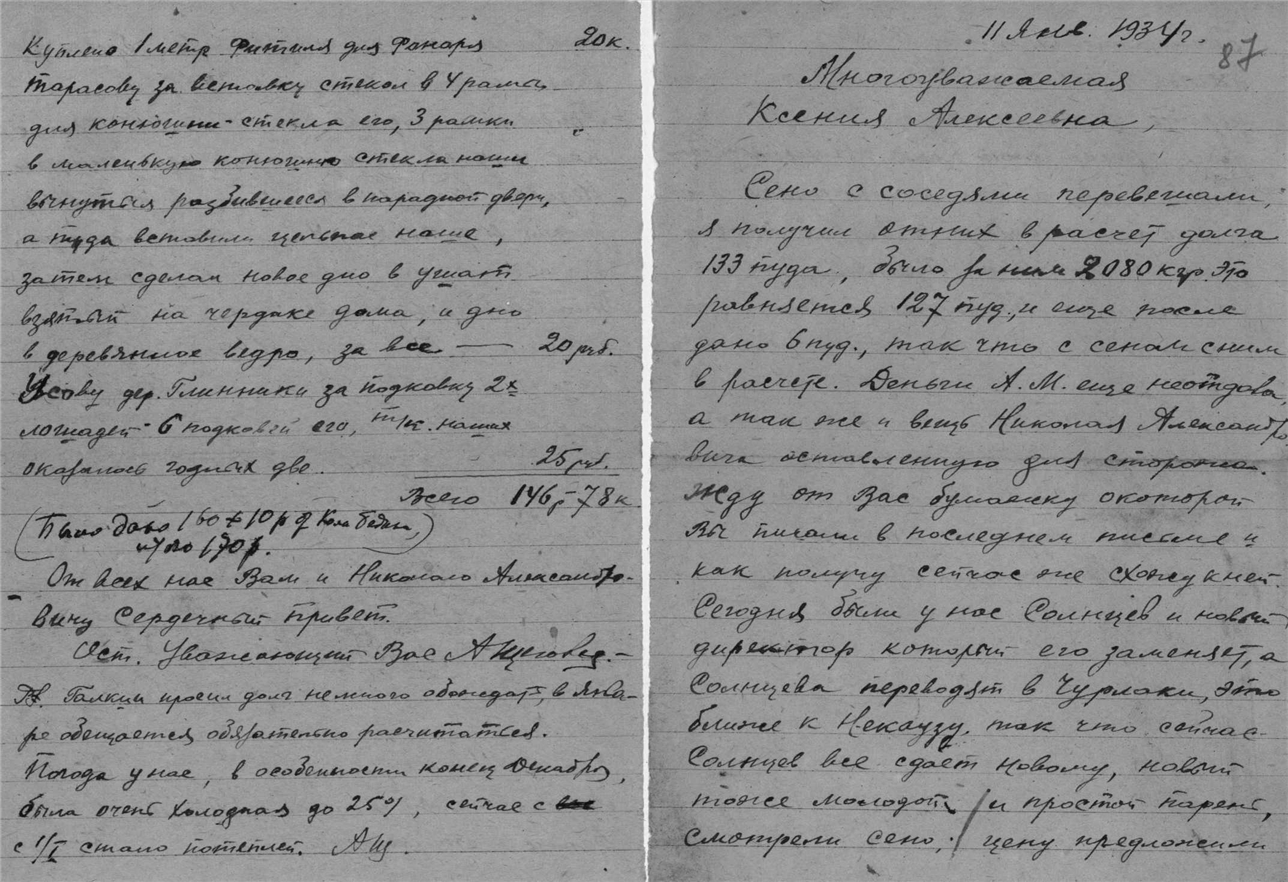 Куплено 1 метр Фитиля для Фонаря 20к.
Тарасову за вставку стекол в 4 рамы
для конюшни - стекла его, 3 рамки "
в маленькую конюшню стекла наши
вынутыя разбившееся в парадной двери,
а туда вставили цельное наше,
затем сделал новое дно в ушат
взятый на чердаке дома, и дно
в деревянное ведро, за все — 20 руб.
Усову дер. Глинники за подковку 2х
лошадей - 6 подковый его, т/к. наших
оказалось годных две. 25 руб.
Всего 146р-78к
(Было дано 160 + 10р
итого 170р.
От всех нас Вам и Николаю Александро-
вичу Сердечный привет.
Ост. Уважающий Вас
Галкин просил долг немного обождать, в янва-
ре обещается обязательно расчитаться.
Погода у нас, в особенности конец Декабря,
была очень холодная до 25%, сейчас с
с 1/I стало потеплей. АЩ.
11 Янв. 1934г.
87
Многоуважаемая
Ксения Алексеевна,
Сено с соседями перевешали,
я получил от них в расчет долга
133 пуда, было за ним 2080 кгр. это
равняется 127 пуд., и еще после
дано 6 пуд., так что с сеном с ним
в расчете. Деньги А. М. еще неотдова,
а так же и вещь Николая Александро
вича оставленную для сторожа.
Жду от Вас бумажку о которой
Вы писали в последнем письме и
как получу сейчас же схожу к ней.
Сегодня были у нас Солнцев и новый
директор который его заменяет, а
Солнцева переводят в Чурлаки, это
ближе к Некоузу, так что сейчас
Солнцев все сдает новому, новый
тоже молодой и простой парень,
смотрели сено; цену предложили